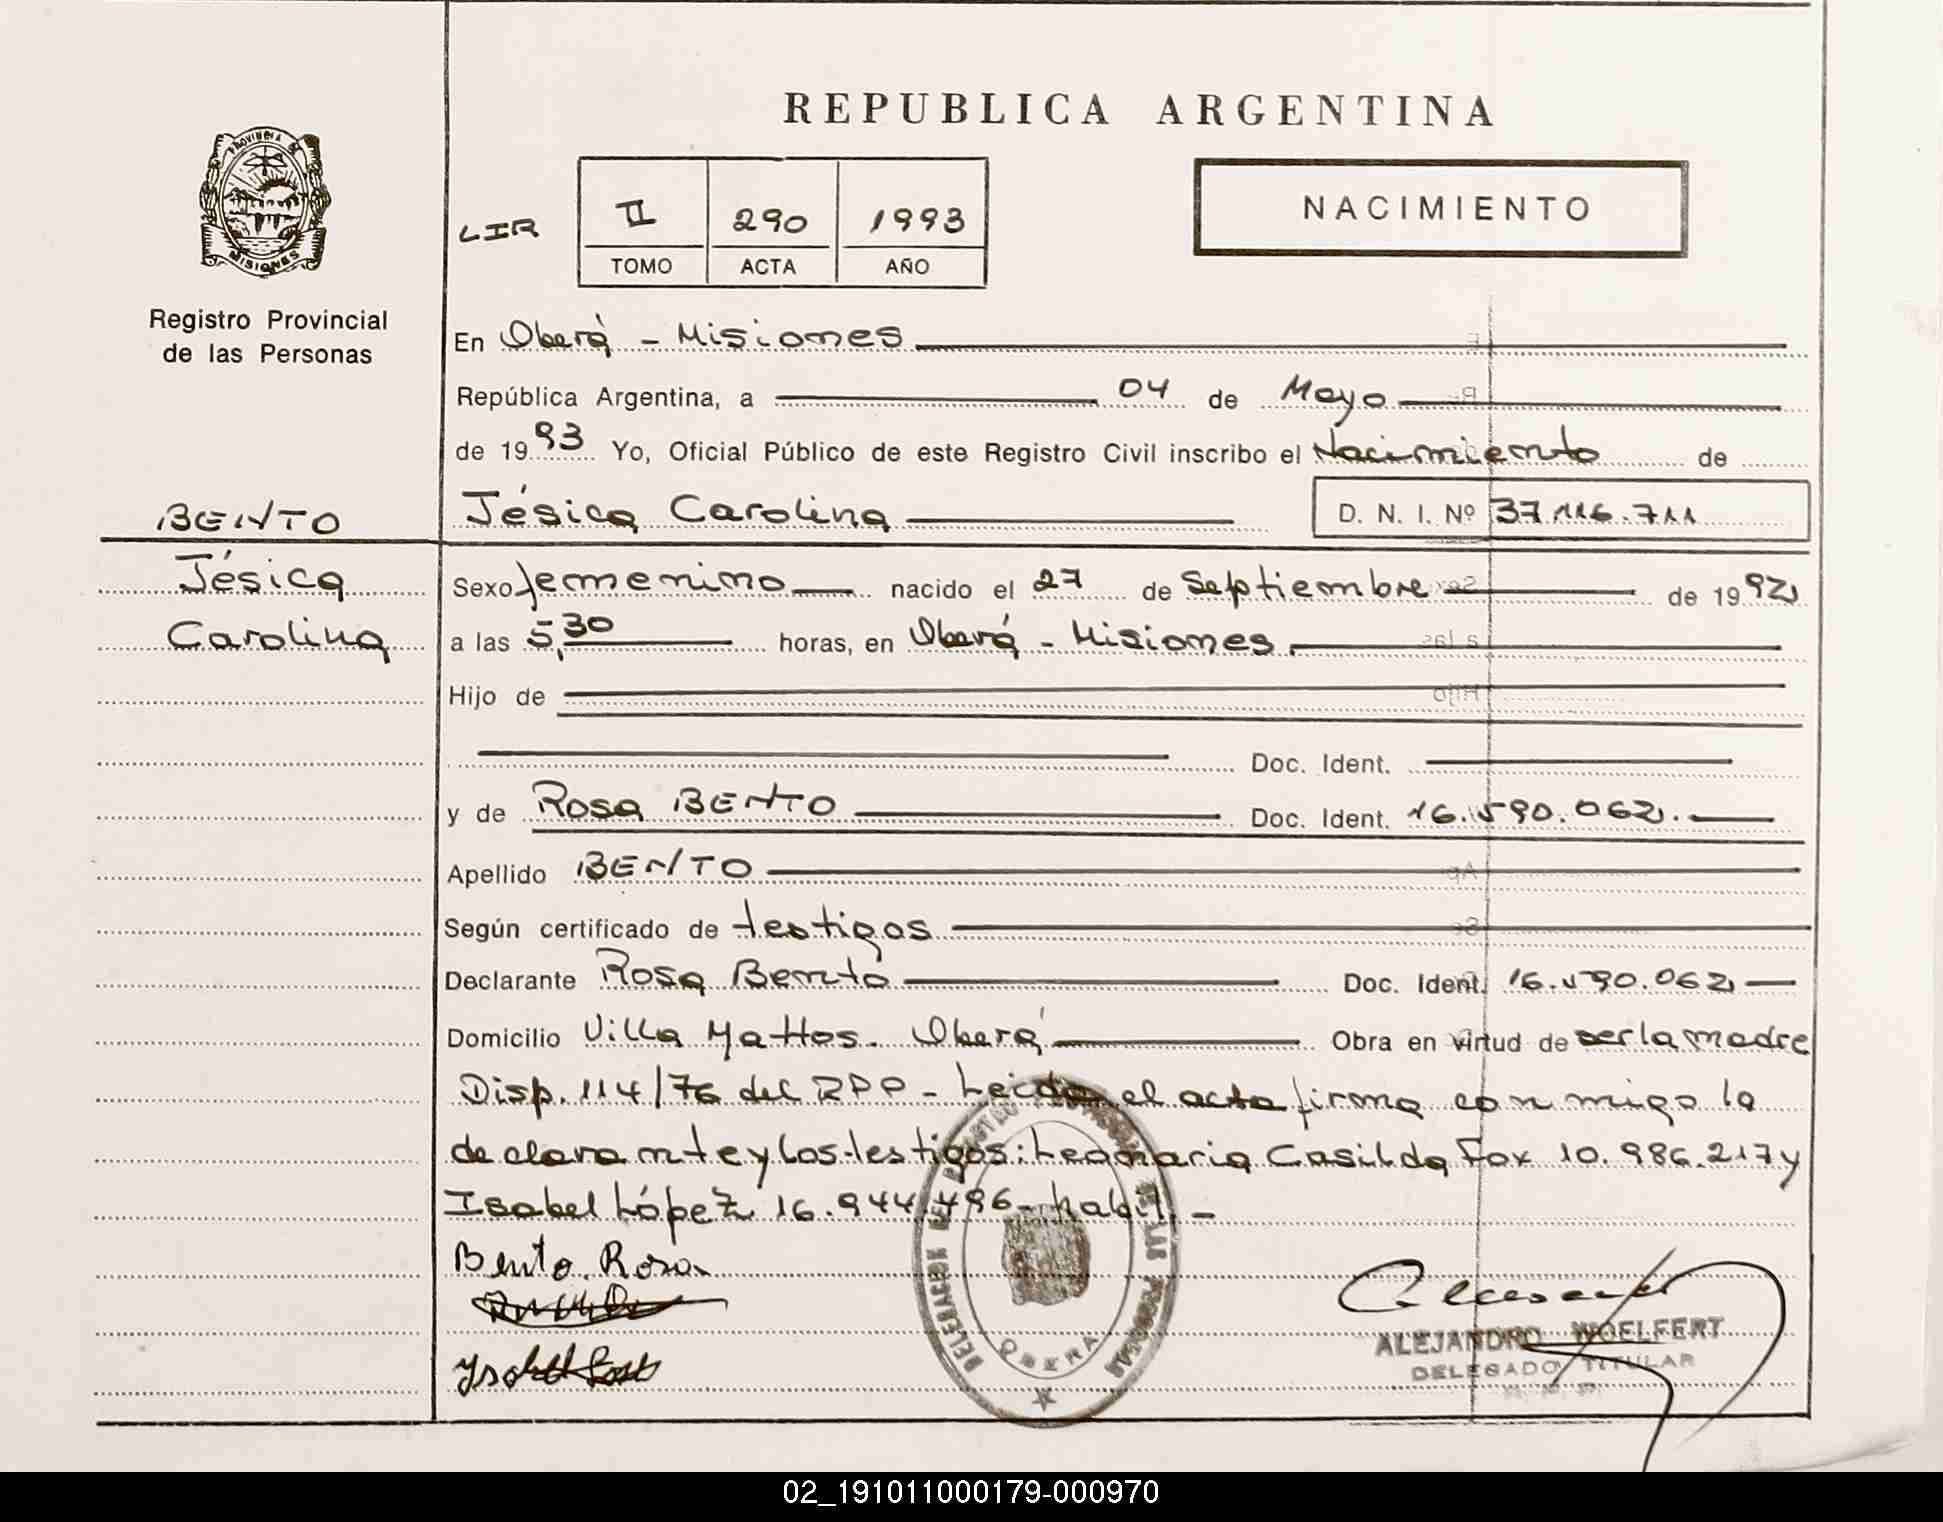 REPUBLICA ARGENTINA
PROVINCIA DE
MISIONES
Registro Provincial
de las Personas
LIR
II 290 1993
TOMO ACTA AÑO
NACIMIENTO
En Oberá - Misiones
República Argentina, a 04 de Mayo
de 1993 Yo, Oficial Público de este Registro Civil inscribo el Nacimiento de
BENTO
Jésica Carolina D. N. I. Nº 37.116.711
Jésica
Carolina
Sexo femenino nacido el 27 de Septiembre de 1992
a las 5,30 horas, en Oberá - Misiones
Hijo de
Doc. Ident.
y de Rosa BENTO Doc. Ident. 16.590.062.
Apellido BENTO
Según certificado de testigos
Declarante Rosa Bento Doc. Ident. 16.590.062
Domicilio Villa Mattos. Oberá Obra en virtud de ser la madre
Disp. 114/76 del RPP - Leida el acta firma conmigo la
declarante y los testigos: Leonaria Casilda Fox 10.986.217 y
Isabel López 16.944.496 - habil. -
Bento Rosa
DELEGACION DEL REGISTRO PROVINCIAL DE LAS PERSONAS
OBERA
ALEJANDRO WOELFERT
DELEGADO TITULAR
02_191011000179-000970